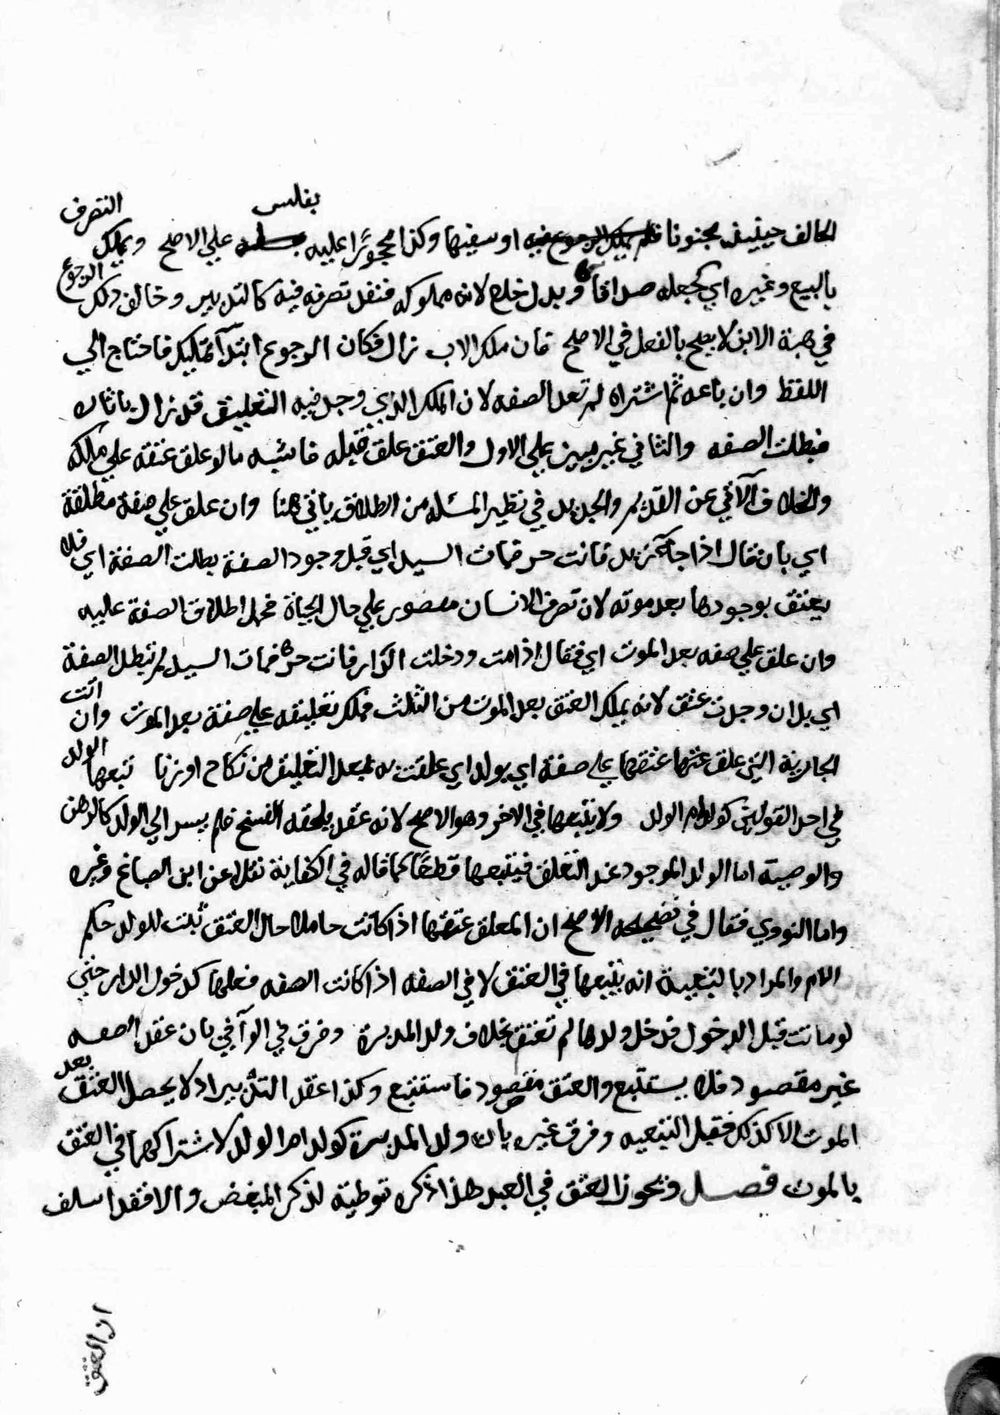 بفلس التصرف
الحالف حينيذ مجنونا او سفيها وكذا محجورا عليه علي الاصح ويملك
بالبيع وغيره اي كجعله صداقا و بدل خلع لانه مملوكه فنفذ تصرفه فيه كالتدبير وخالف ذلك الرجوع
في هبة الابن لا يصح بالفعل في الاصح فان ملك الاب زال فكان الرجوع ابتدآ تمليك فاحتاج الي
اللفظ وان باعه ثم اشتراه لم تعد الصفه لان الملك الذي وجد فيه التعليق قد زال باثاره
فبطلت الصفه والثاني غير مبني علي الاول والعتق علق قبله فاشبه مالو علق عتقه علي ملكه
والخلاف الآتي عن القديم والجديد في نظير المسئله من الطلاق ياتي هنا وان علق علي صفة مطلقة
اي بان قال اذا جا فانت حر فمات السيد اي قبل وجود الصفة بطلت الصفة اي فلا
يعتق بوجودها بعد موته لان تصرف الانسان مقصور علي حال الحياة فحمل اطلاق الصفة عليه
وان علق علي صفه بعد الموت اي فقال اذا مت ودخلت الدار فانت حر فمات السيد لم تبطل الصفة
اي بل ان وجدت عتق لانه يملك العتق بعد الموت من الثلث فملك تعليقه علي صفة بعد الموت وان اتت
الجارية التي علق عتقها علي صفة اي بولد اي علقت به بعد التعليق من نكاح او زنا تبعها الولد
في احد القولين كولد ام الولد ولا يتبعها في الاخر وهو الاصح لانه عقد يلحقه الفسخ فلم يسر الي الولد كالرهن
والوصية اما الولد الموجود عند التعليق فيتبعها قطعا كما قاله في الكفاية نقلا عن ابن الصباغ وغيره
واما النووي فقال في تصحيحه الاصح ان المعلق عتقها اذا كانت حاملا حال العتق ثبت للولد حكم
الام والمراد بالتبعية انه يتبعها في العتق لا في الصفه اذا كانت الصفه فعلها كدخول الدار حتي
لو ماتت قبل الدخول فدخل ولدها لم تعتق بخلاف ولد المدبرة وفرق في الوافي بان عقد الصفه
غير مقصود فلا يستتبع والعتق مقصود فاستتبع وكذا عقد التدبير اذ لا يحصل العتق بعد
الموت الا كذلك فقبل التبعيه وفرق غيره بان ولد المدبرة كولد ام الولد لاشتراكهما في العتق
بالموت فصل ويجوز العتق في العبد هذا ذكره توطية لذكر المبعض والا فقد اسلف